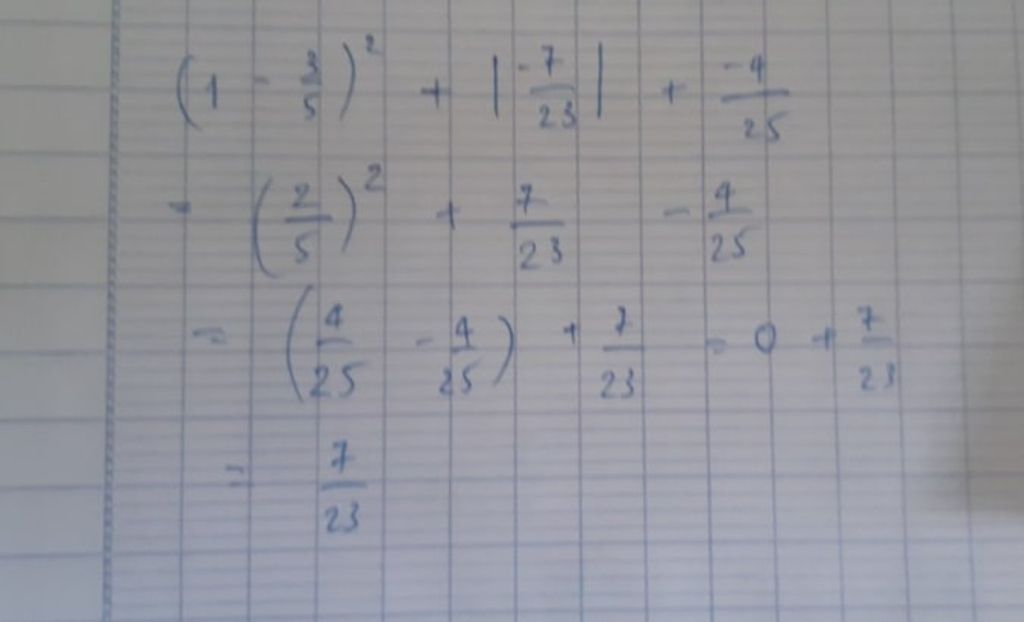 (1 - 3/5)² + |-7/23| + -4/25
= (2/5)² + 7/23 - 4/25
= (4/25 - 4/25) + 7/23 = 0 + 7/23
= 7/23